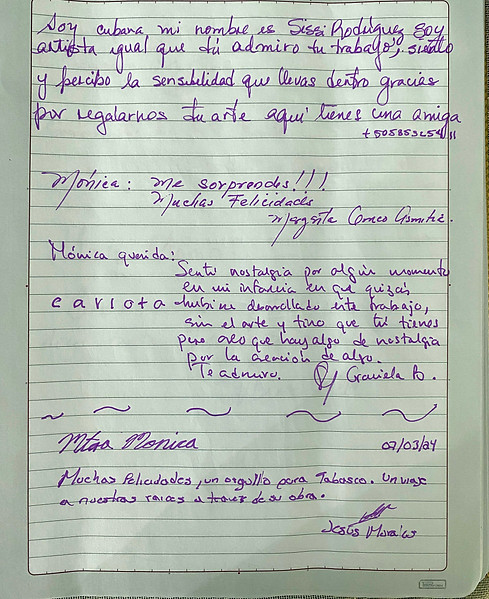 Soy cubana mi nombre es Sissi Rodríguez soy
artista igual que tú admiro tu trabajo, siento
y percibo la sensibilidad que llevas dentro gracias
por regalarnos tu arte aquí tienes una amiga
Mónica: me sorprendes!!!
Muchas Felicidades
Margarita
Mónica querida:
Sentí nostalgia por algún momento
en mi infancia en que quizás
cariota
hubiese desarrollado este trabajo,
sin el arte y tino que tú tienes
pero creo que hay algo de nostalgia
por la creación de algo.
Te admiro. Graciela B.
Mtra Monica 07/03/24
Muchas Felicidades, un orgullo para Tabasco. Un viaje
a nuestras raices a traves de su obra.
Jesús Morales